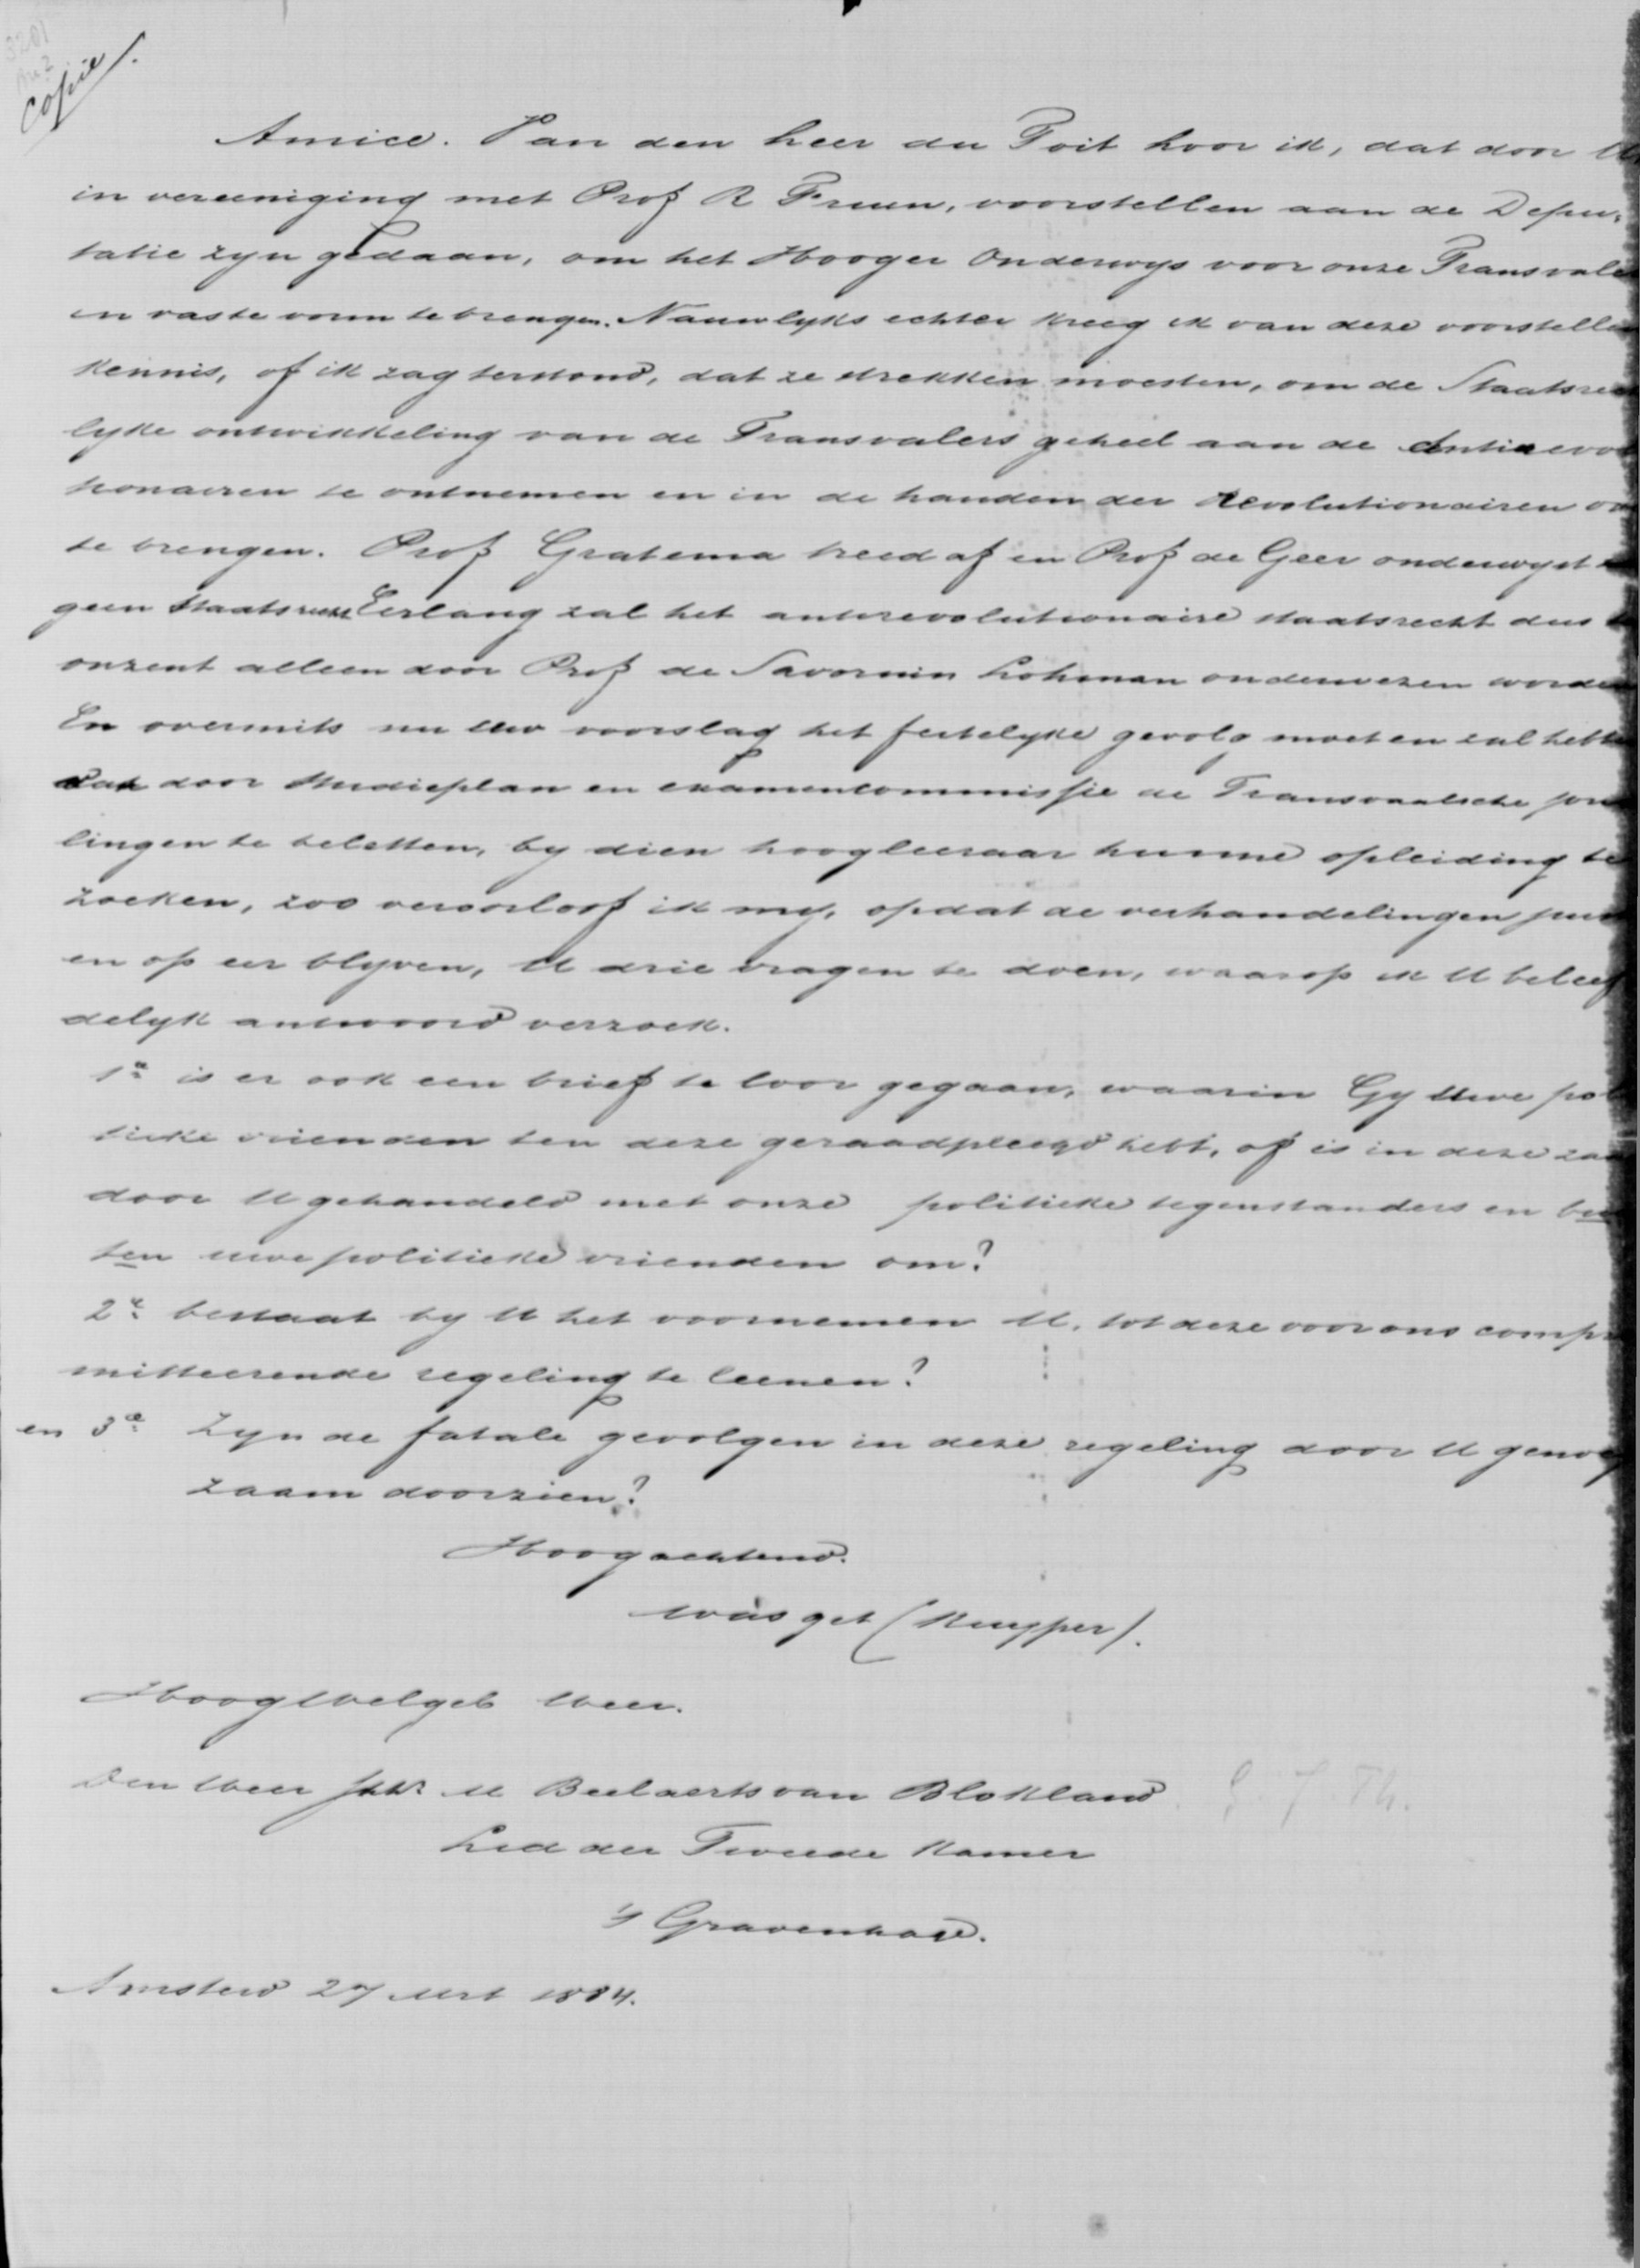 3201
Copie/.
Amice. Van den heer du Toit hoor ik, dat door U
in vereeniging met Prof R Fruin, voorstellen aan de Depu-
tatie zyn gedaan, om het Hooger Onderwys voor onze Transvale
in vaste vorm te brengen. Nauwlyks echter kreeg ik van deze voorstelle
kennis, of ik zag terstond, dat ze strekken moesten, om de Staatsre
lyke ontwikkeling van de Transvalers geheel aan de Antirevo
tionairen te ontnemen en in de handen der Revolutionairen o
te brengen. Prof Gratema treed af en Prof de Geer onderwyst
geen Staatsrecht Eerlang zal het antirevolutionaire staatsrecht dus
onzent alleen door Prof de Savornin Lohman onderwezen worde
En overmits nu Uw voorslag het feitelyke gevolg moet en zal hebbe
dat door studieplan en examencommissie de Transvaalsche jon
lingen te beletten, by dien hoogleeraar hunne opleiding te
zoeken, zoo veroorloof ik my, opdat de verhandelingen
en op eer blyven, U drie vragen te doen, waarop ik U beleef
delyk antwoord verzoek.
1e is er ook een brief te loor gegaan, waarin Gy Uwe pol
tieke vrienden ten deze geraadpleegd hebt, of is in deze zaa
door U gehandeld met onze politieke tegenstanders en bui
ten uwe politieke vrienden om?
2e bestaat by U het voornemen U, tot deze voor ons compr
mitteerende regeling te leenen?
en 3e Zyn de fatale gevolgen in deze regeling door U genoeg
zaam doorzien?
Hoogachtend.
was get (Kuyper).
Hoog Welgeb Heer.
Den Heer Jhr M Beelaerts van Blokland
Lid der Tweede Kamer
's Gravenhage.
Amsterd 27 Mrt 1884.